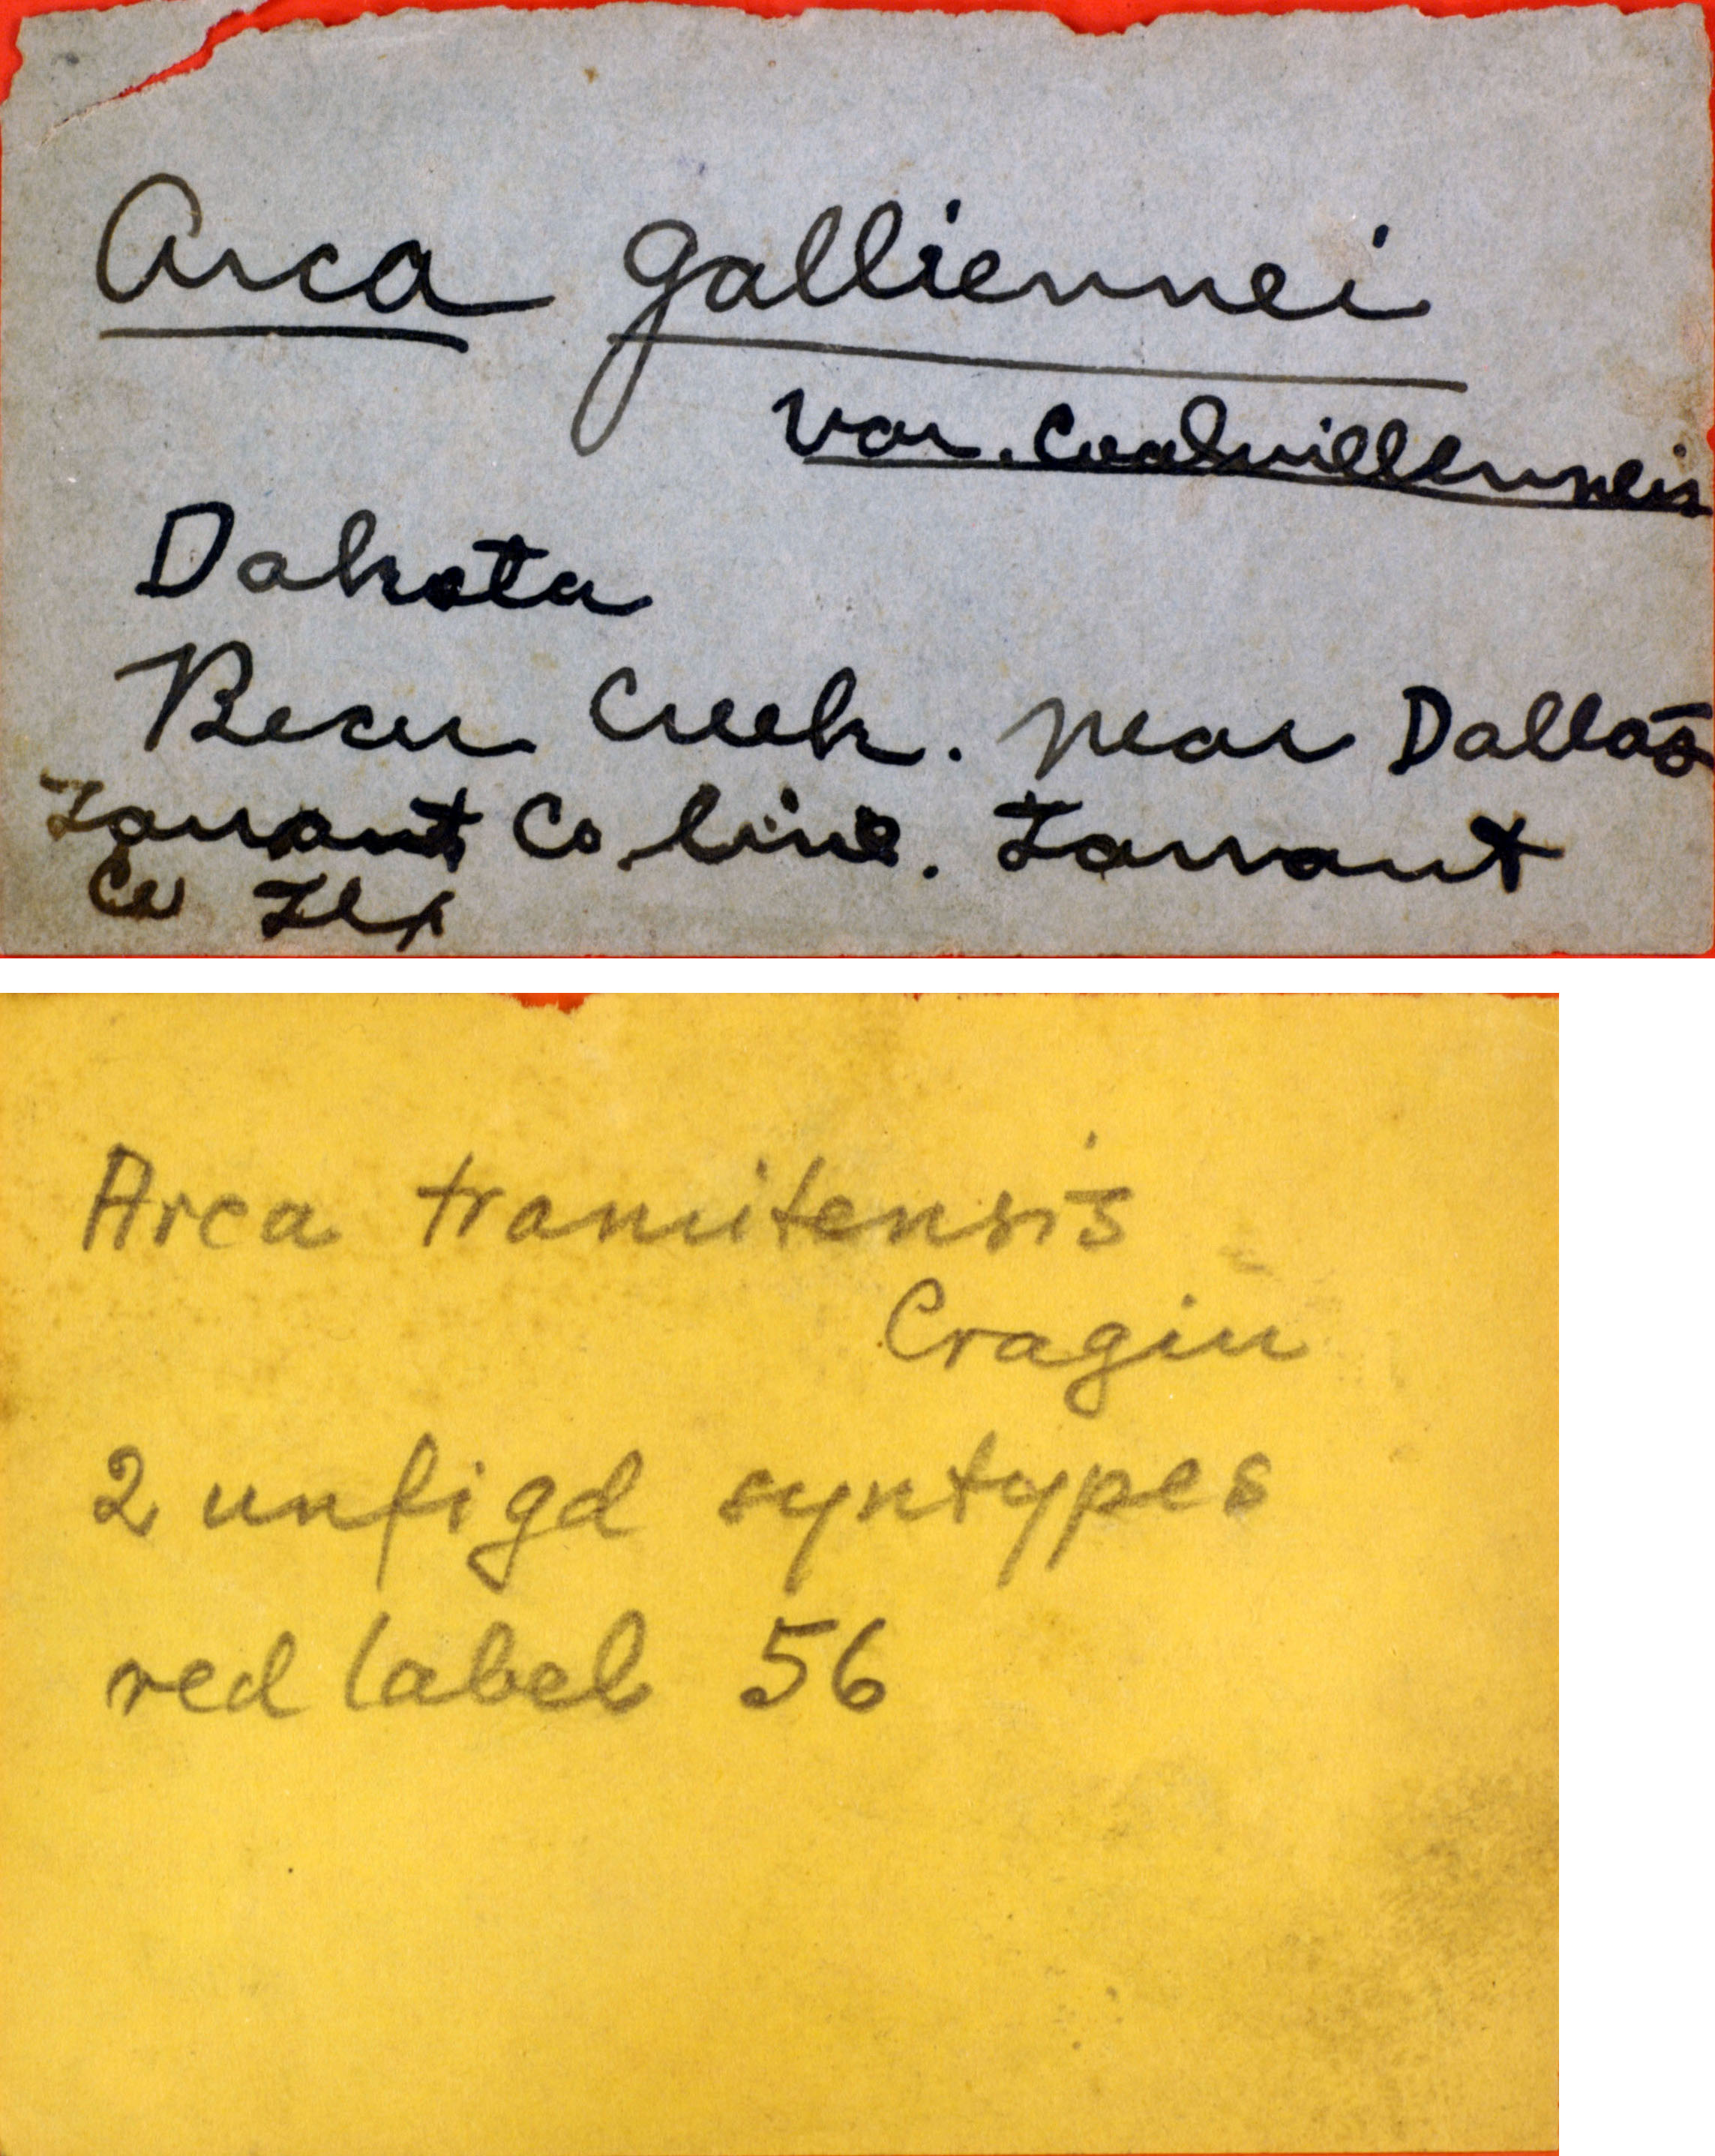 Arca galliennei
var. Coalvillenneis
Dakota
Bear Creek. near Dallas
Tarrant Co line. Tarrant
Co Tex
Arca tramitensis
Cragin
2 unfigd syntypes
red label 56